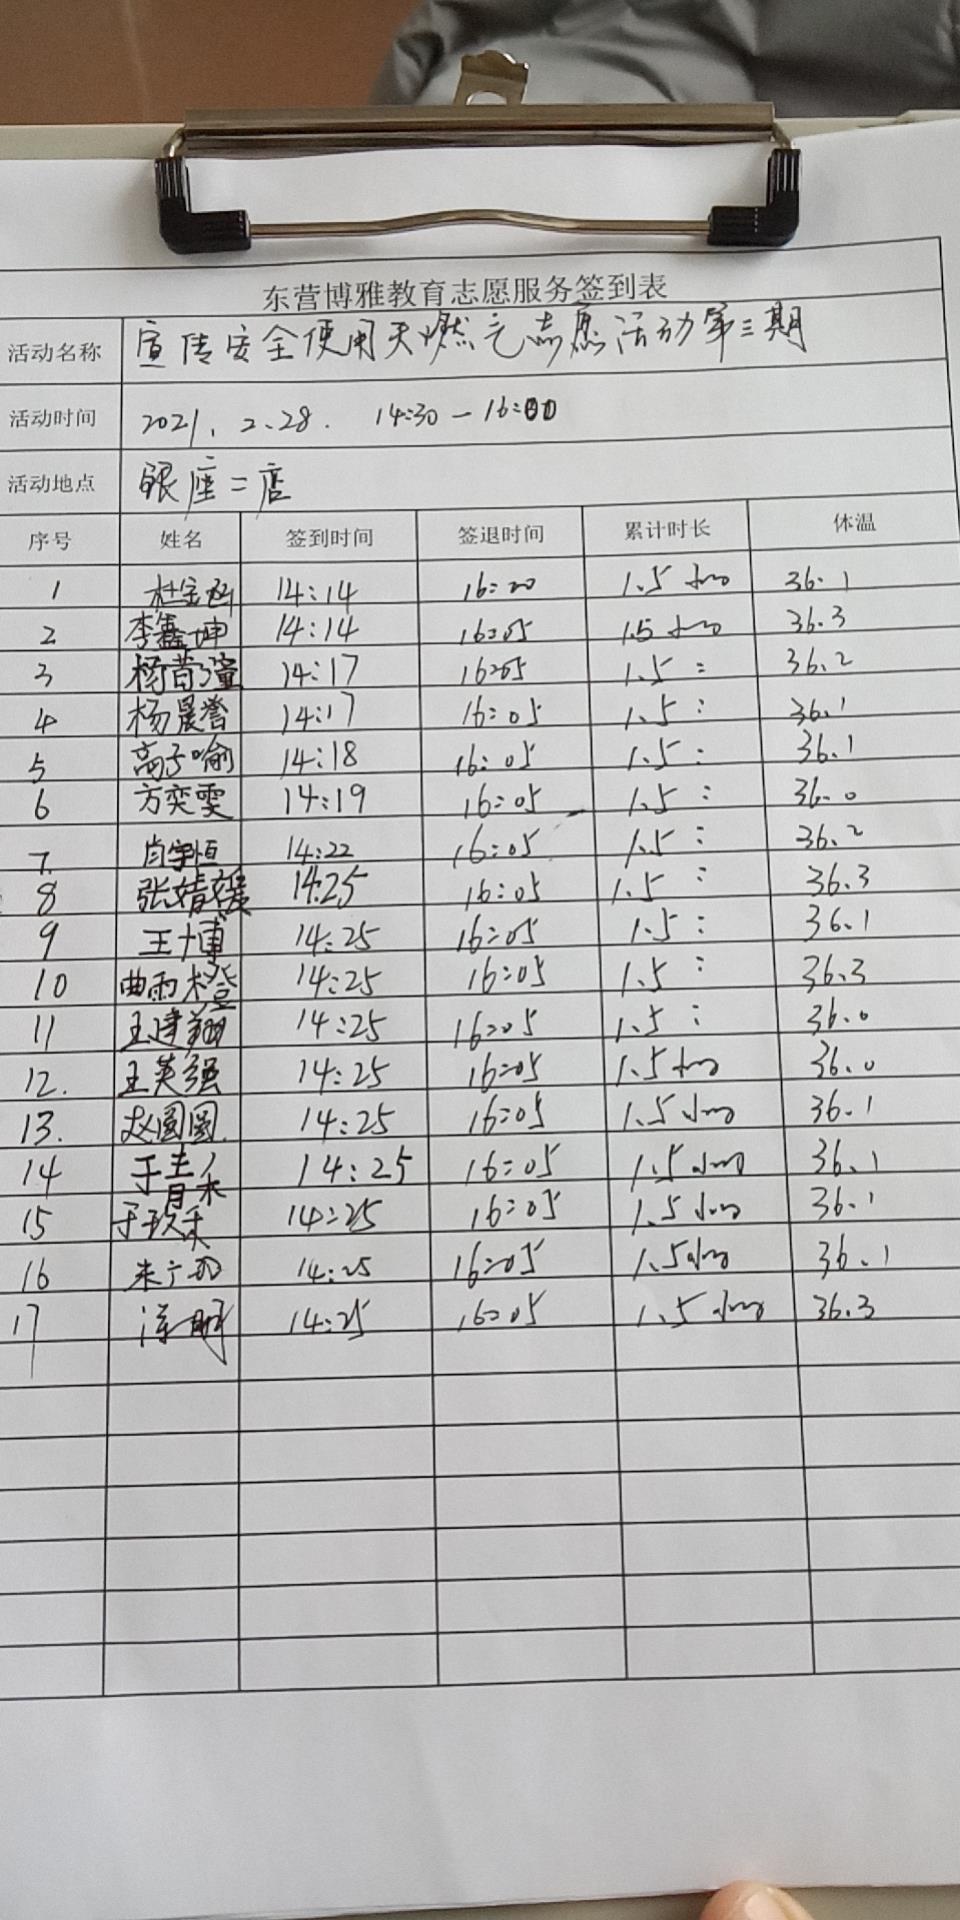 东营博雅教育志愿服务签到表
活动名称 宣传安全使用天燃气志愿活动第三期
活动时间 2021.2.28. 14:30—16:00
活动地点 银座二店
序号 姓名 签到时间 签退时间 累计时长 体温
1 14:14 16:00 1.5 36.1
2 李鑫坤 14:14 16:05 1.5 36.3
3 14:17 16:05 1.5 : 36.2
4 杨晨誉 14:17 16:05 1.5 : 36.1
5 高子喻 14:18 16:05 1.5 : 36.1
6 方奕雯 14:19 16:05 1.5 : 36.0
7. 肖宇恒 14:22 16:05 1.5 : 36.2
8 张婧媛 14:25 16:05 1.5 : 36.3
9 王博 14:25 16:05 1.5 : 36.1
10 曲雨橙 14:25 16:05 1.5 : 36.3
11 王建翔 14:25 16:05 1.5 : 36.0
12. 王英强 14:25 16:05 1.5 36.0
13. 赵圆圆. 14:25 16:05 1.5 36.1
14 于青禾 14:25 16:05 1.5 36.1
15 于玖禾 14:25 16:05 1.5 36.1
16 14:25 16:05 1.5 36.1
17 14:25 16:05 1.5 36.3